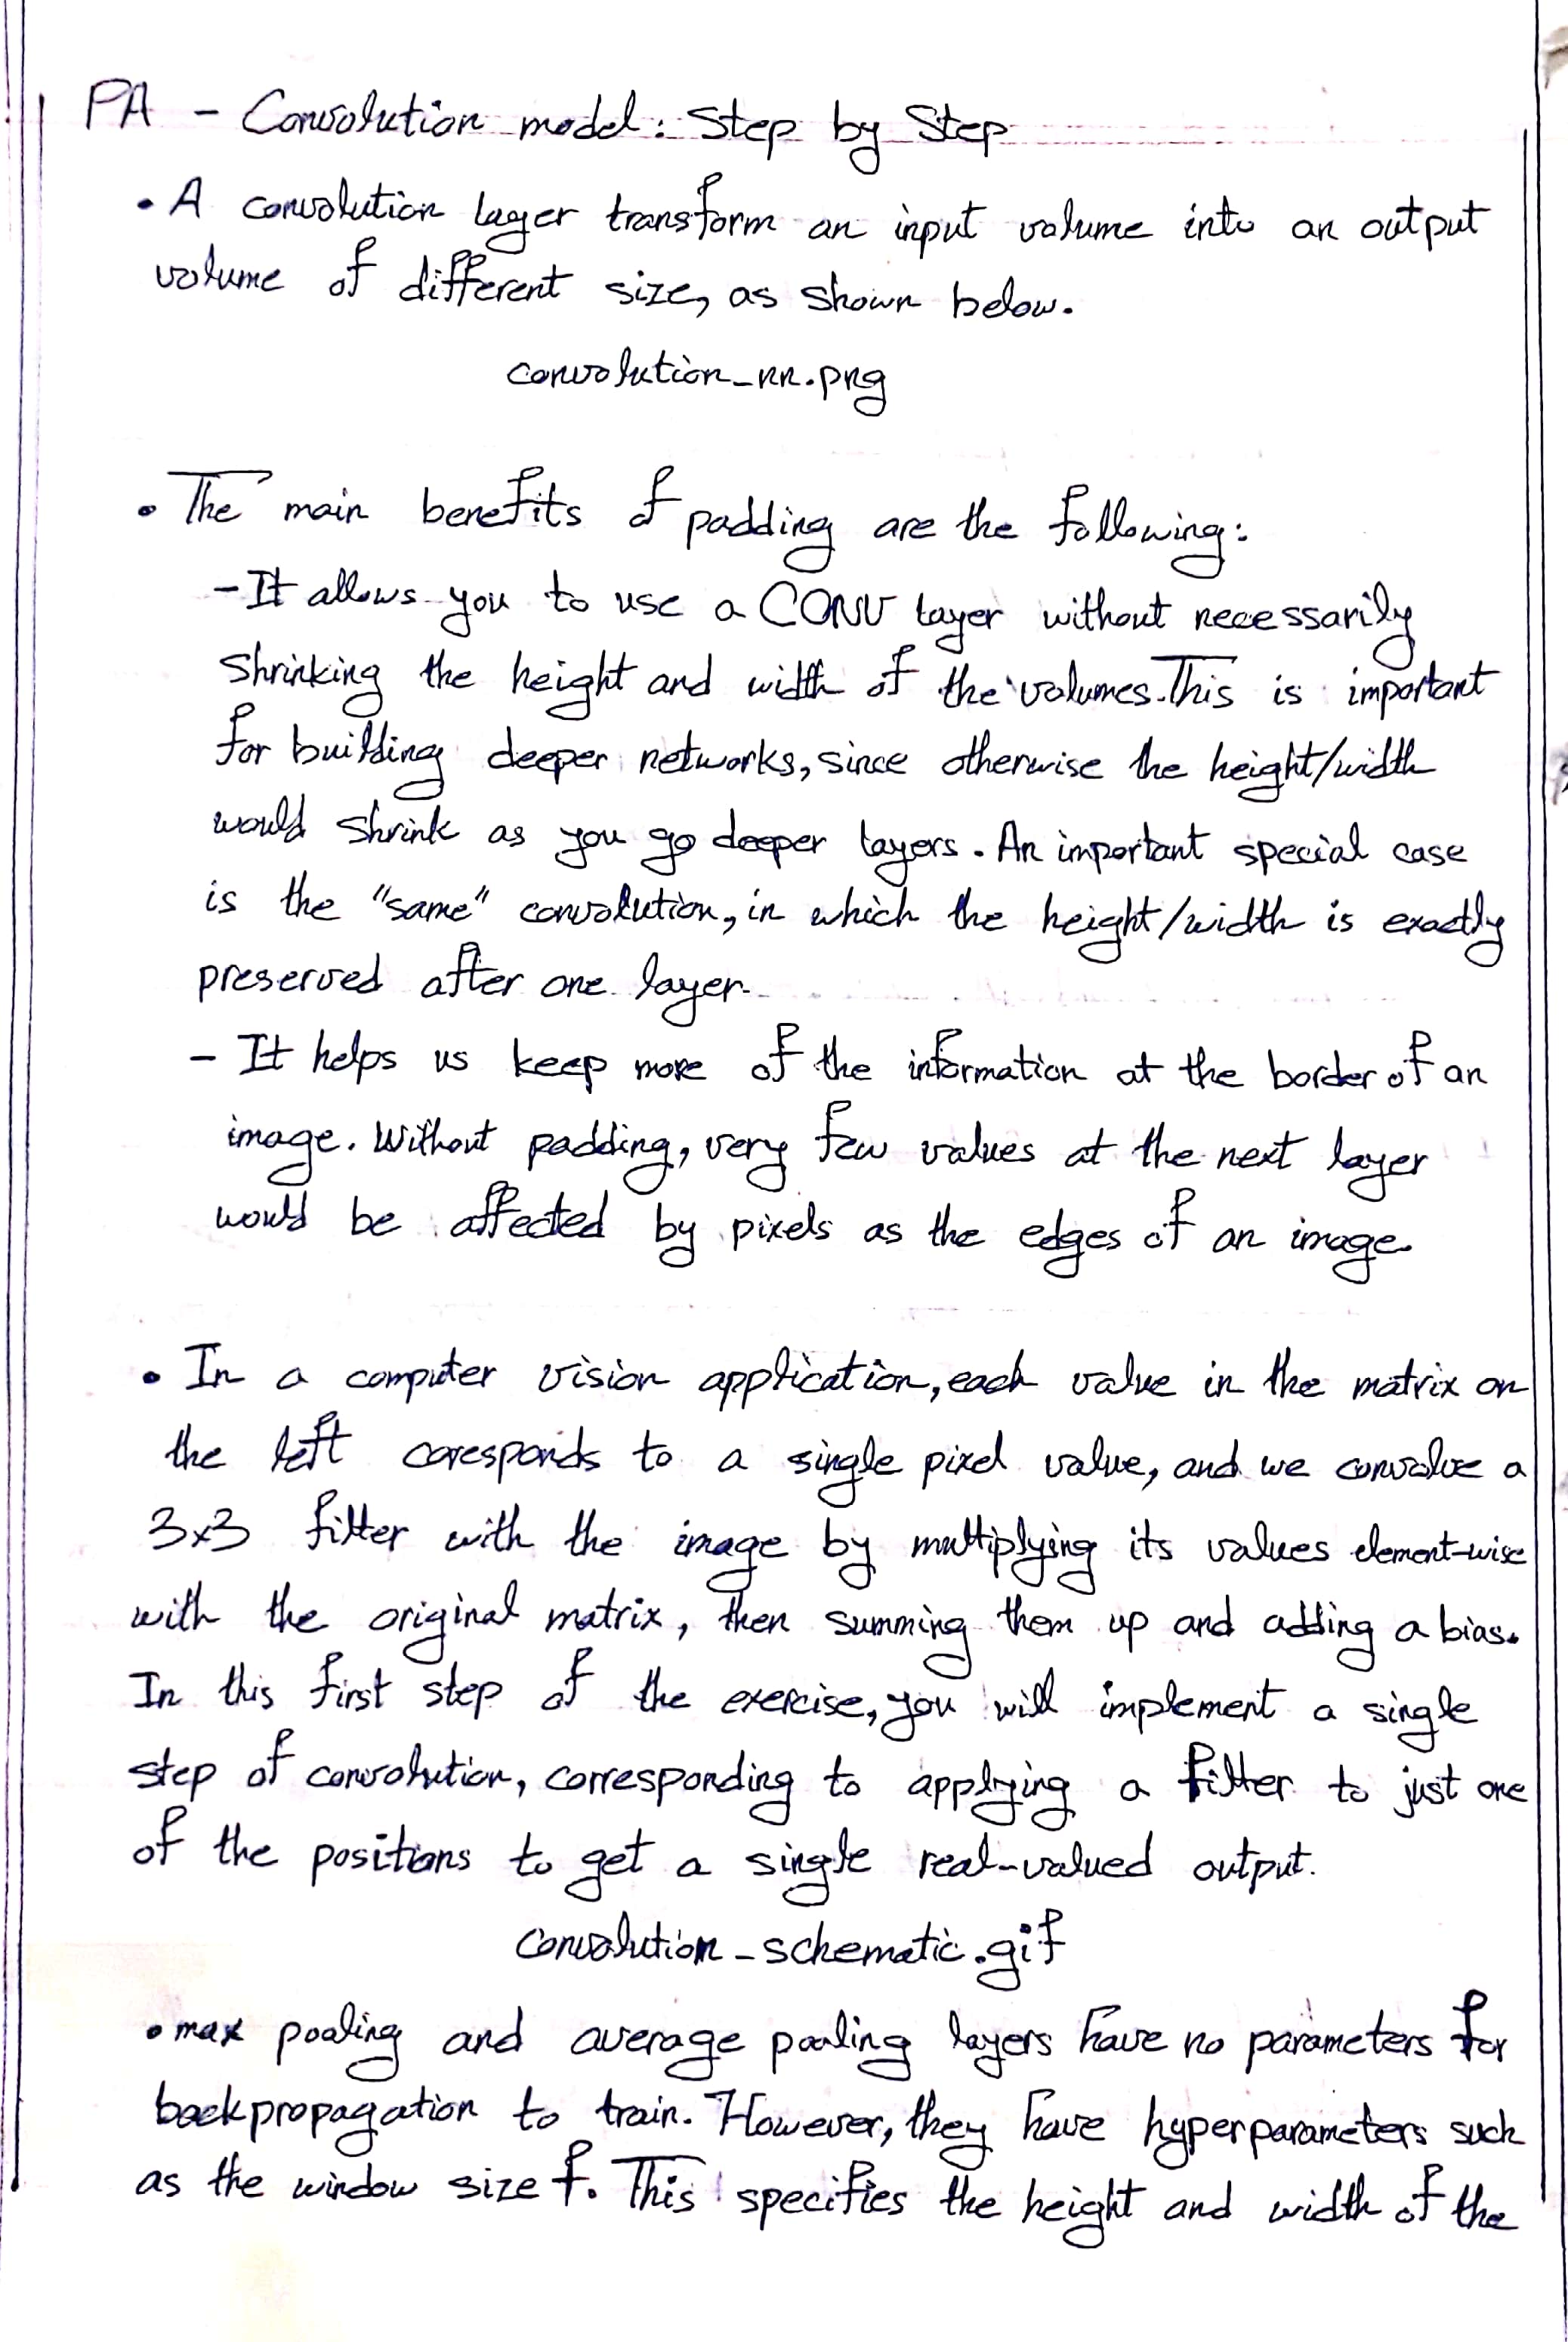 PA - Convolution model: Step by Step
• A convolution layer transform an input volume into an output
volume of different size, as shown below.
convolution_nn.png
• The main benefits of padding are the following:
- It allows you to use a CONV layer without necessarily
shrinking the height and width of the volumes. This is important
for building deeper networks, since otherwise the height/width
would shrink as you go deeper layers. An important special case
is the "same" convolution, in which the height/width is exactly
preserved after one layer.
- It helps us keep more of the information at the border of an
image. Without padding, very few values at the next layer
would be affected by pixels as the edges of an image.
• In a computer vision application, each value in the matrix on
the left coresponds to a single pixel value, and we convolve a
3x3 filter with the image by multiplying its values element-wise
with the original matrix, then summing them up and adding a bias.
In this first step of the exercise, you will implement a single
step of convolution, corresponding to applying a filter to just one
of the positions to get a single real-valued output.
Convolution_schematic.gif
• max pooling and average pooling layers have no parameters for
backpropagation to train. However, they have hyperparameters such
as the window size f. This specifies the height and width of the